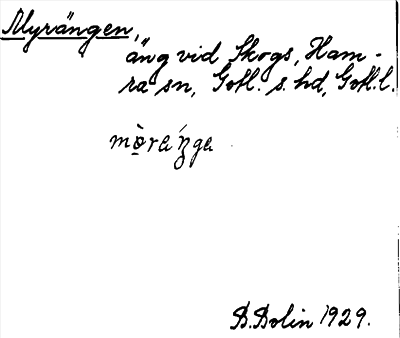 Myrängen,
äng vid Skogs, Ham-
ra sn, Gotl. s. hd, Gotl. l.
mö̀ráŋga
D. Bolin 1929.